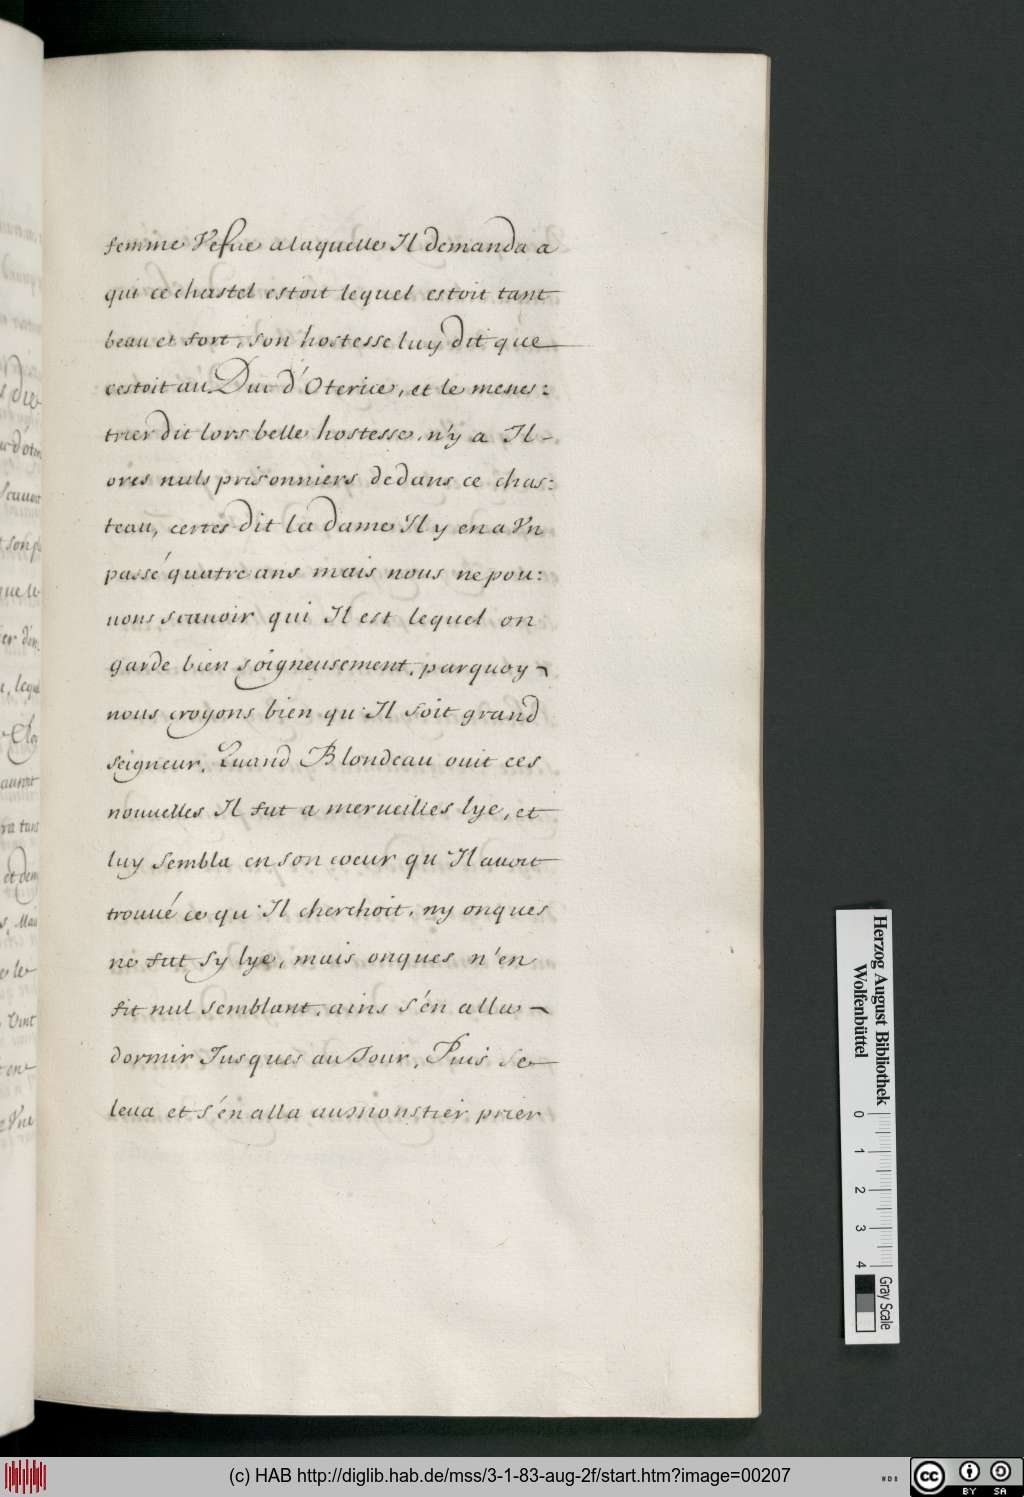 femme Vefue a laquelle Il demanda a
qui ce chastel estoit lequel estoit tant
beau et fort, son hostesse luy dit que
cestoit au Duc d'Oterice, et le menes:
trier dit lors belle hostesse, n'y a Il -
ores nuls prisonniers dedans ce chas:
teau, certes dit la dame Il y en a Vn
passé quatre ans mais nous ne pou:
uons scauoir qui Il est lequel on
garde bien soigneusement, parquoy ¬
nous croyons bien qu'Il soit grand
seigneur, Quand Blondeau ouit ces
nouuelles Il fut a merueilles lye, et
luy sembla en son coeur qu'Il auoit
trouué ce qu'Il cherchoit, ny onques
ne fut sy lye, mais onques n'en
fit nul semblant, ains s'en alla ¬
dormir Jusques au Jour, Puis se
leua et s'en alla au monstier prier
Herzog August Bibliothek
Wolfenbüttel
0 1 2 3 4
Gray Scale
(c) HAB http://diglib.hab.de/mss/3-1-83-aug-2f/start.htm?image=00207
WDB
cc BY SA